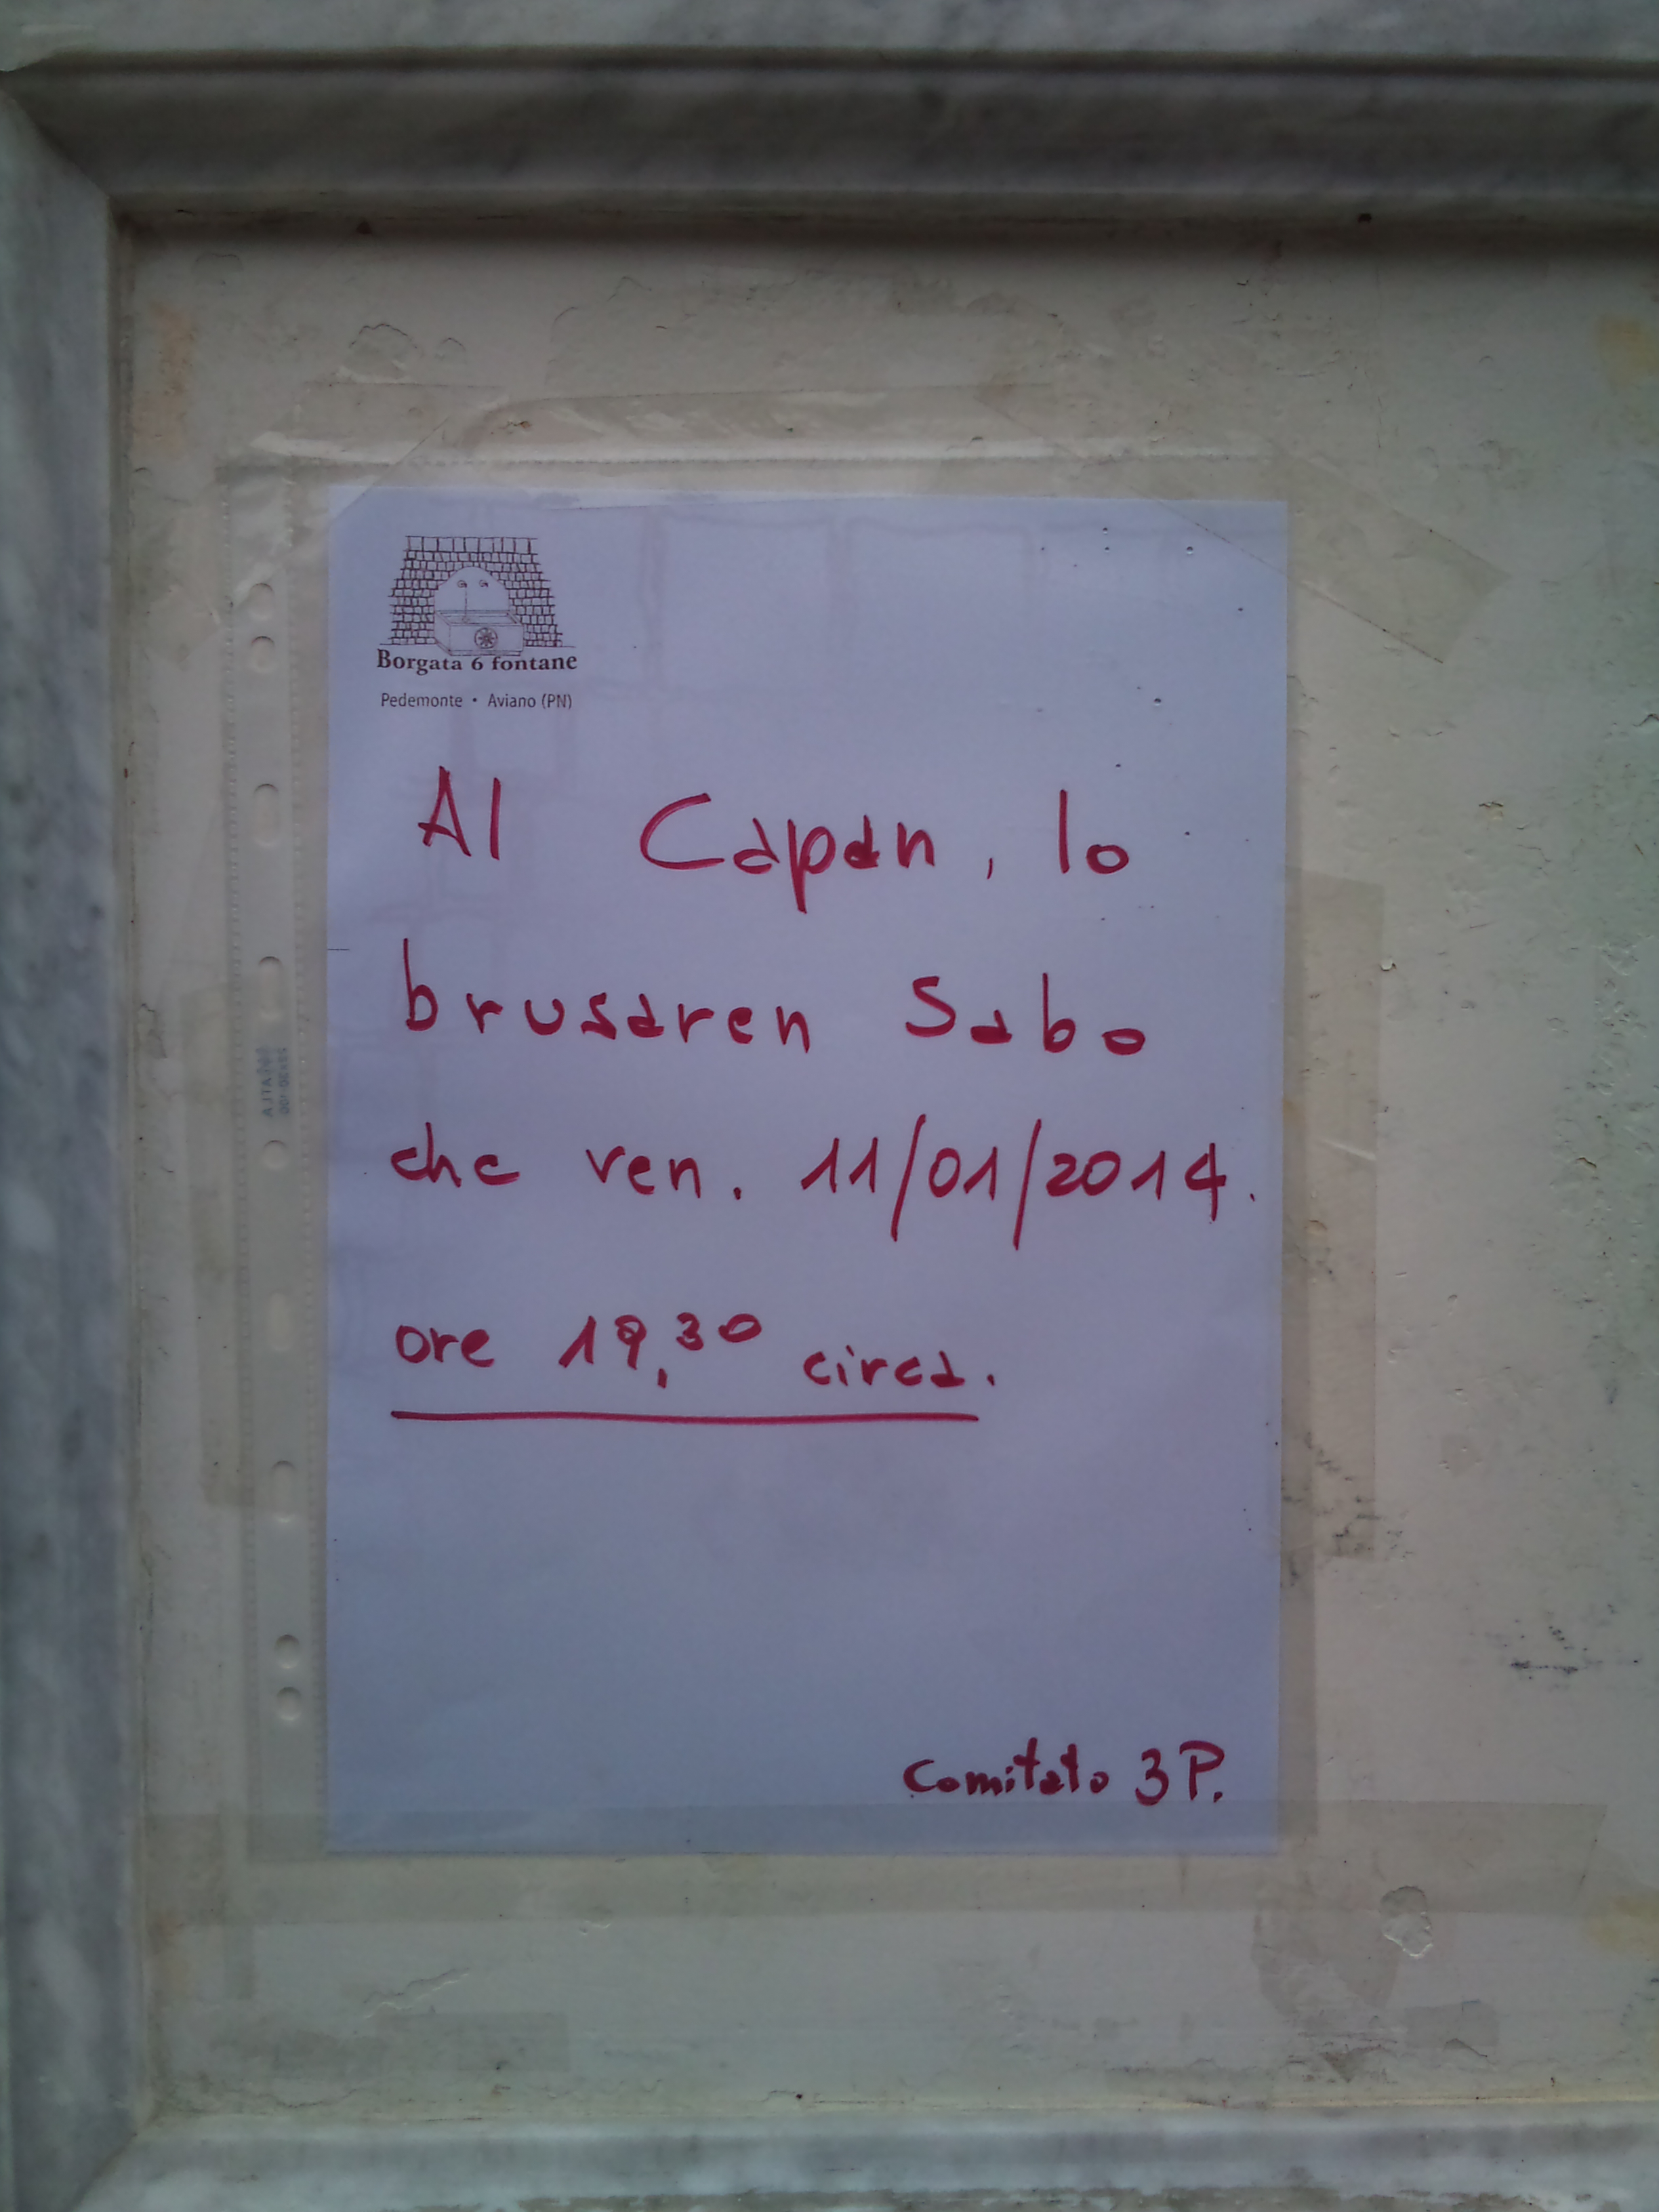 Borgata 6 fontane
Pedemonte • Aviano (PN)
Al Capan, lo
brusaren Sabo
che ven. 11/01/2014.
ore 19,30 circa.
Comitato 3P.